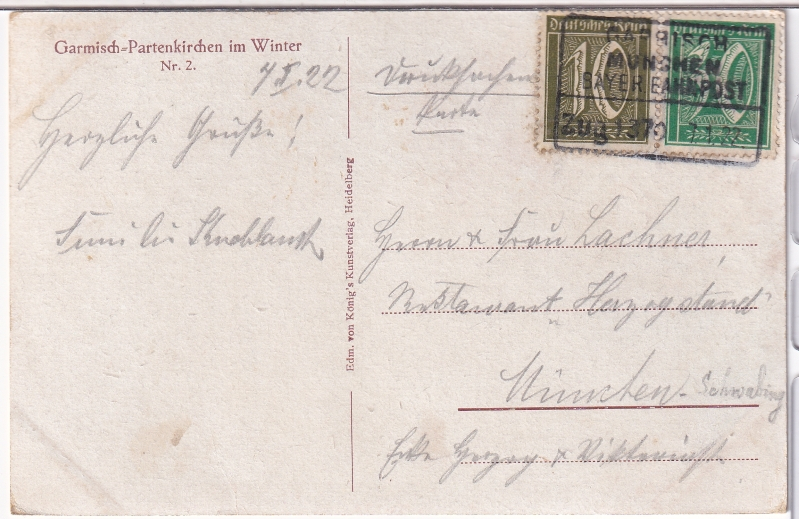 Garmisch-Partenkirchen im Winter
Nr. 2.
7.II.22
Herzliche Grüße!
Familie Knoblauch
Edm. von König's Kunstverlag, Heidelberg
Drucksachen
Karte
Deutsches Reich
10
Deutsches Reich
GARMISCH
MÜNCHEN
BAYER BAHNPOST
Zug 270
Herrn & Frau Lachner,
Restaurant "Herzogstand"
München-Schwabing
Ecke Herzog & Viktoriastr